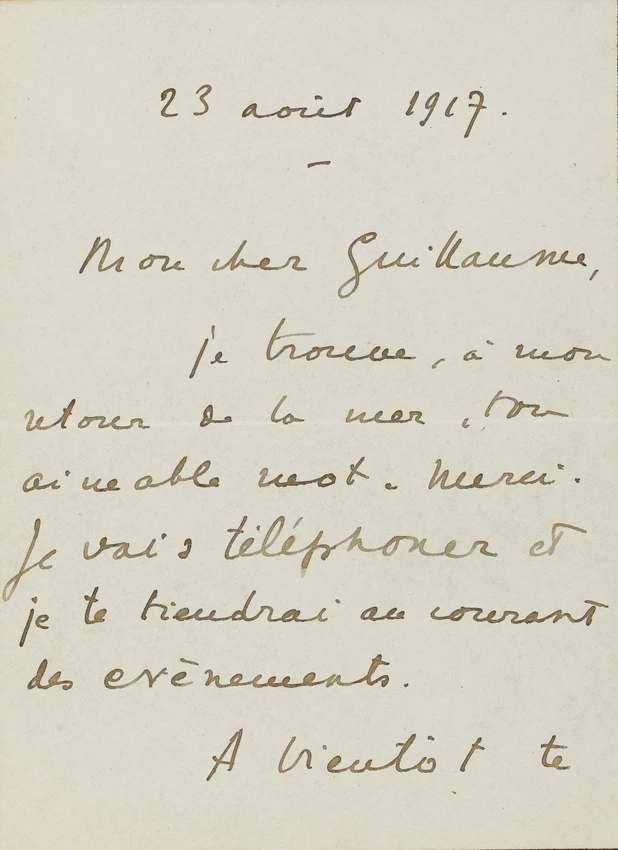 23 août 1917.
—
Mon cher Guillaume,
je trouve, à mon
retour de la mer, ton
aimable mot. Merci.
Je vais téléphoner et
je te tiendrai au courant
des evènements.
A bientôt te